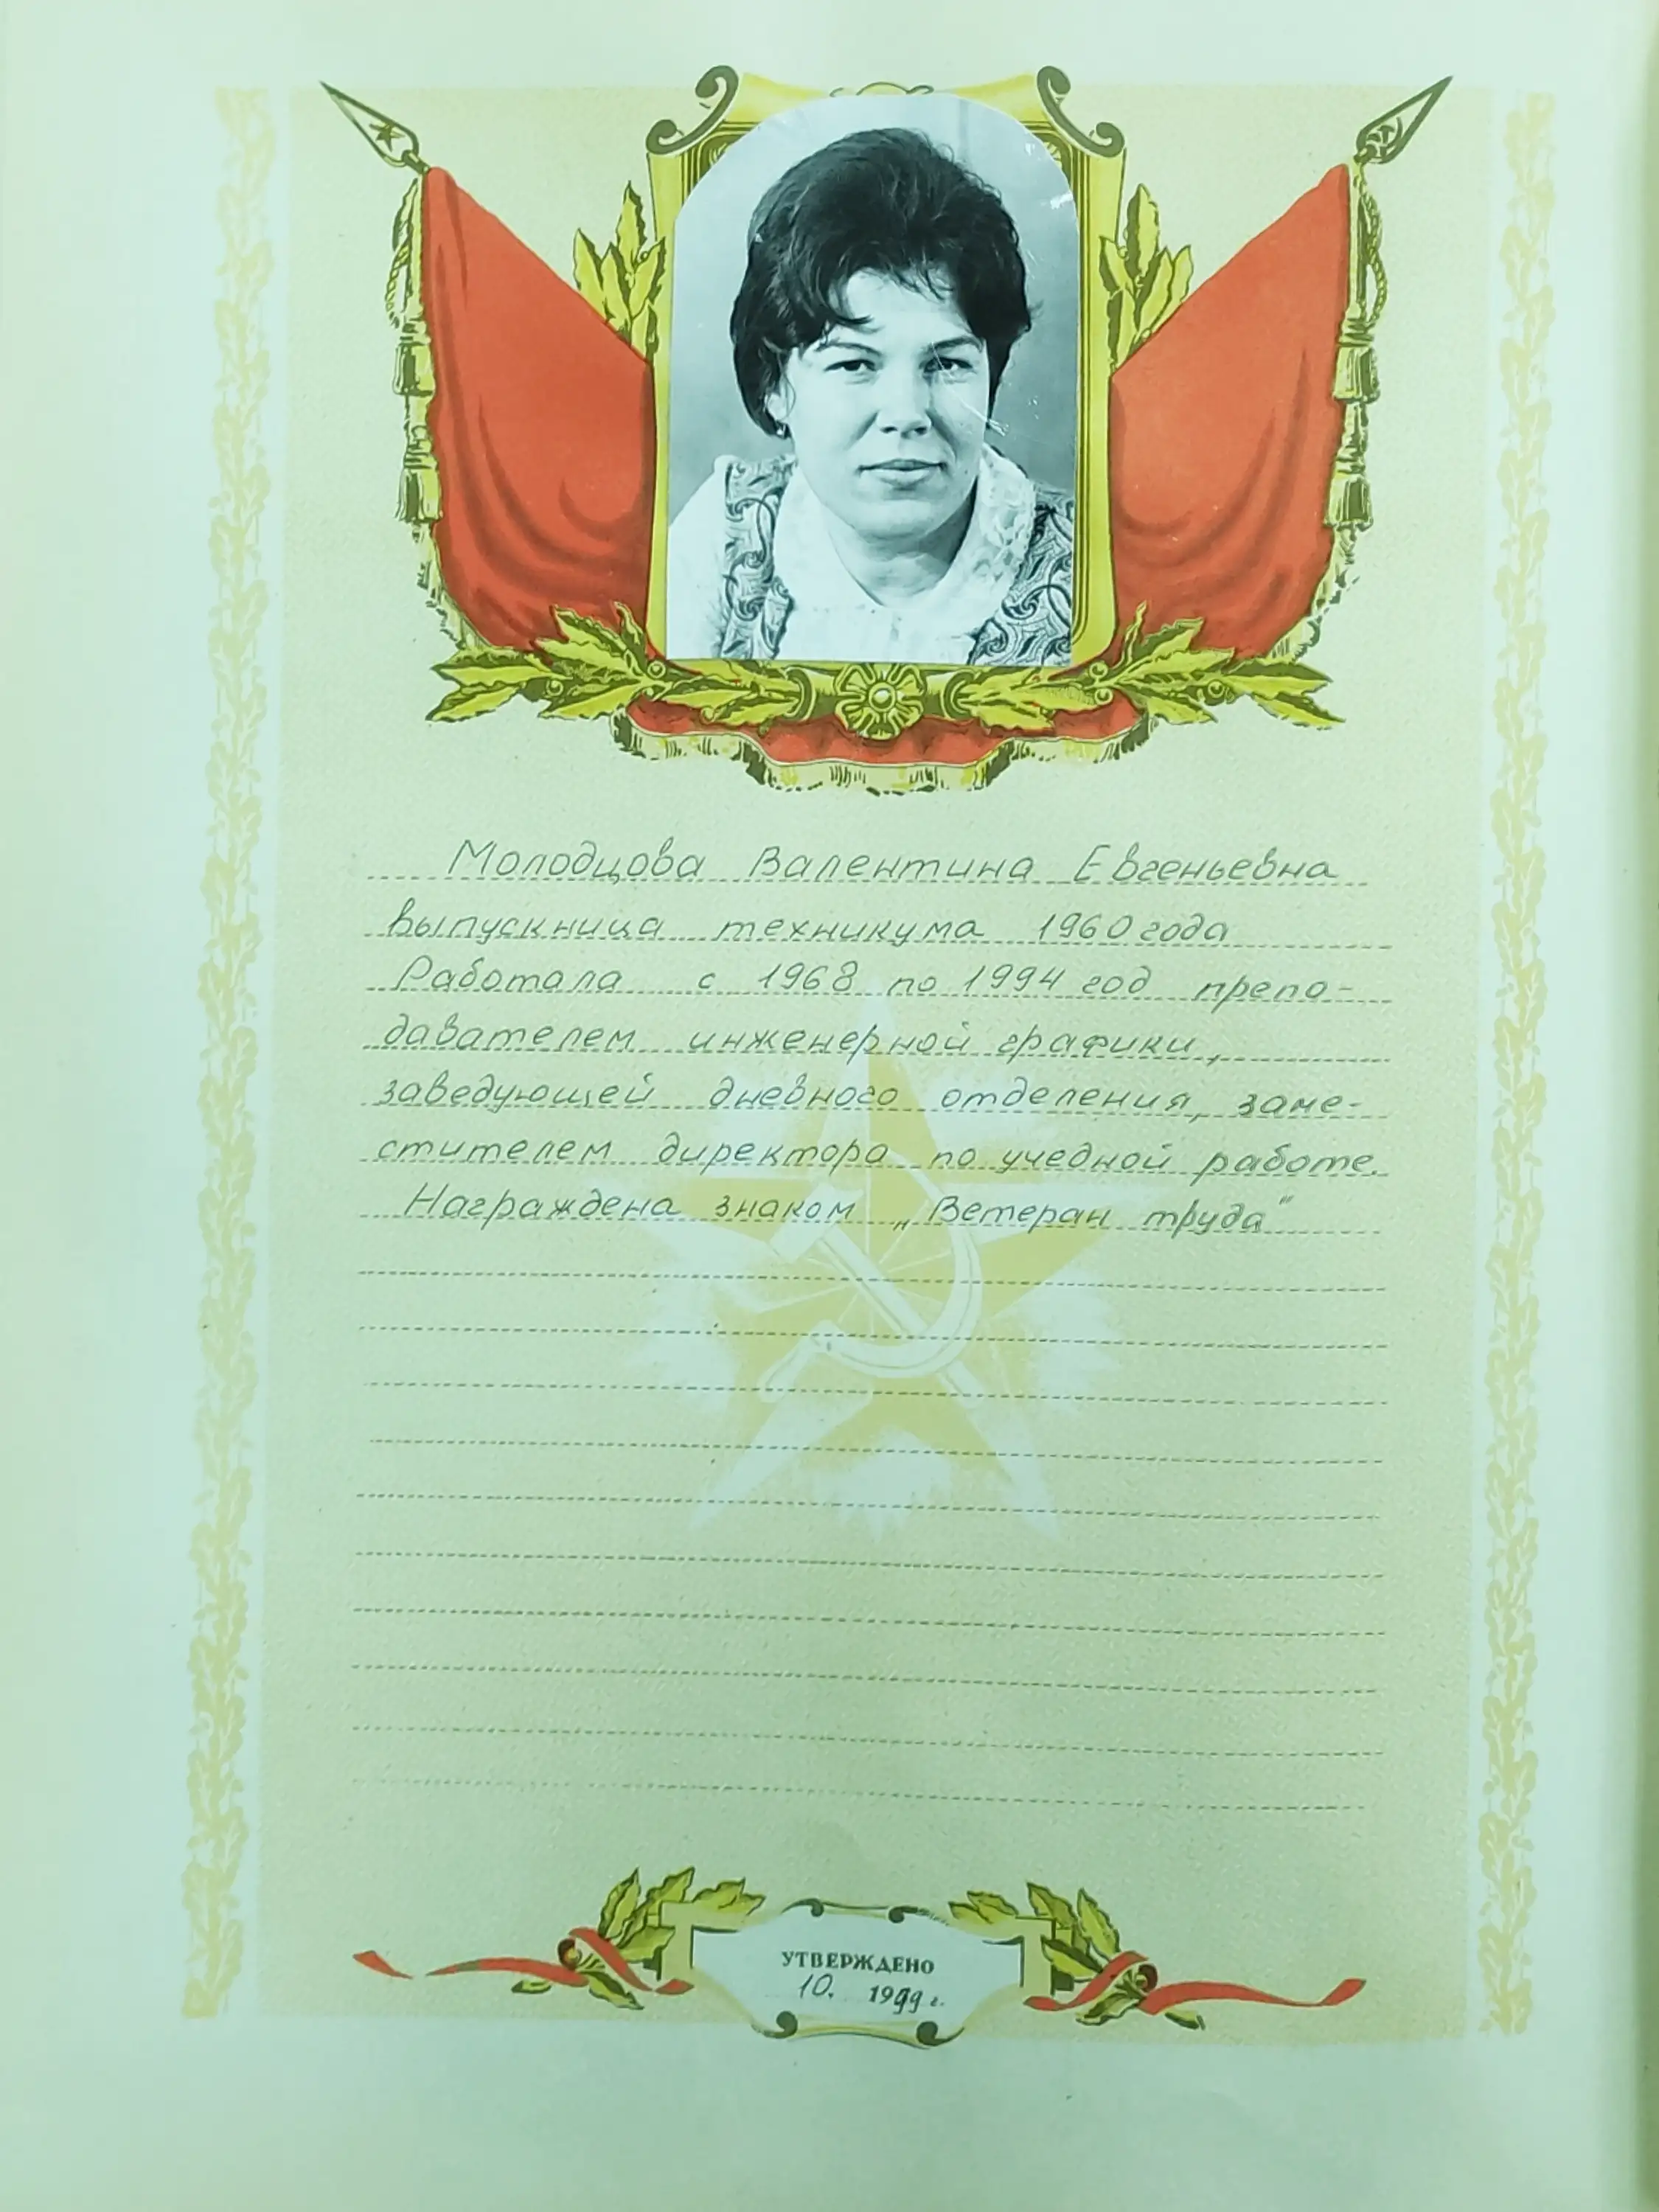 Молодцова Валентина Евгеньевна
выпускница техникума 1960 года
Работала с 1968 по 1994 год препо-
давателем инженерной графики,
заведующей дневного отделения, заме-
стителем директора по учебной работе.
Награждена знаком „Ветеран труда"
УТВЕРЖДЕНО
10. 1999 г.